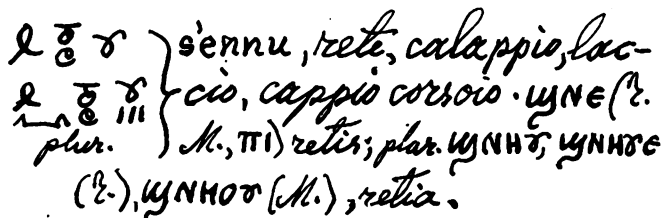 s'ennu, reti, calappio, lac-
cio, cappio corsoio. ϣⲛⲉ (T.
plur. M., ⲡⲓ) retis; plur. ϣⲛⲏⲩ, ϣⲛⲏⲩⲉ
(T.), ϣⲛⲏⲟⲩ (M.), retia.